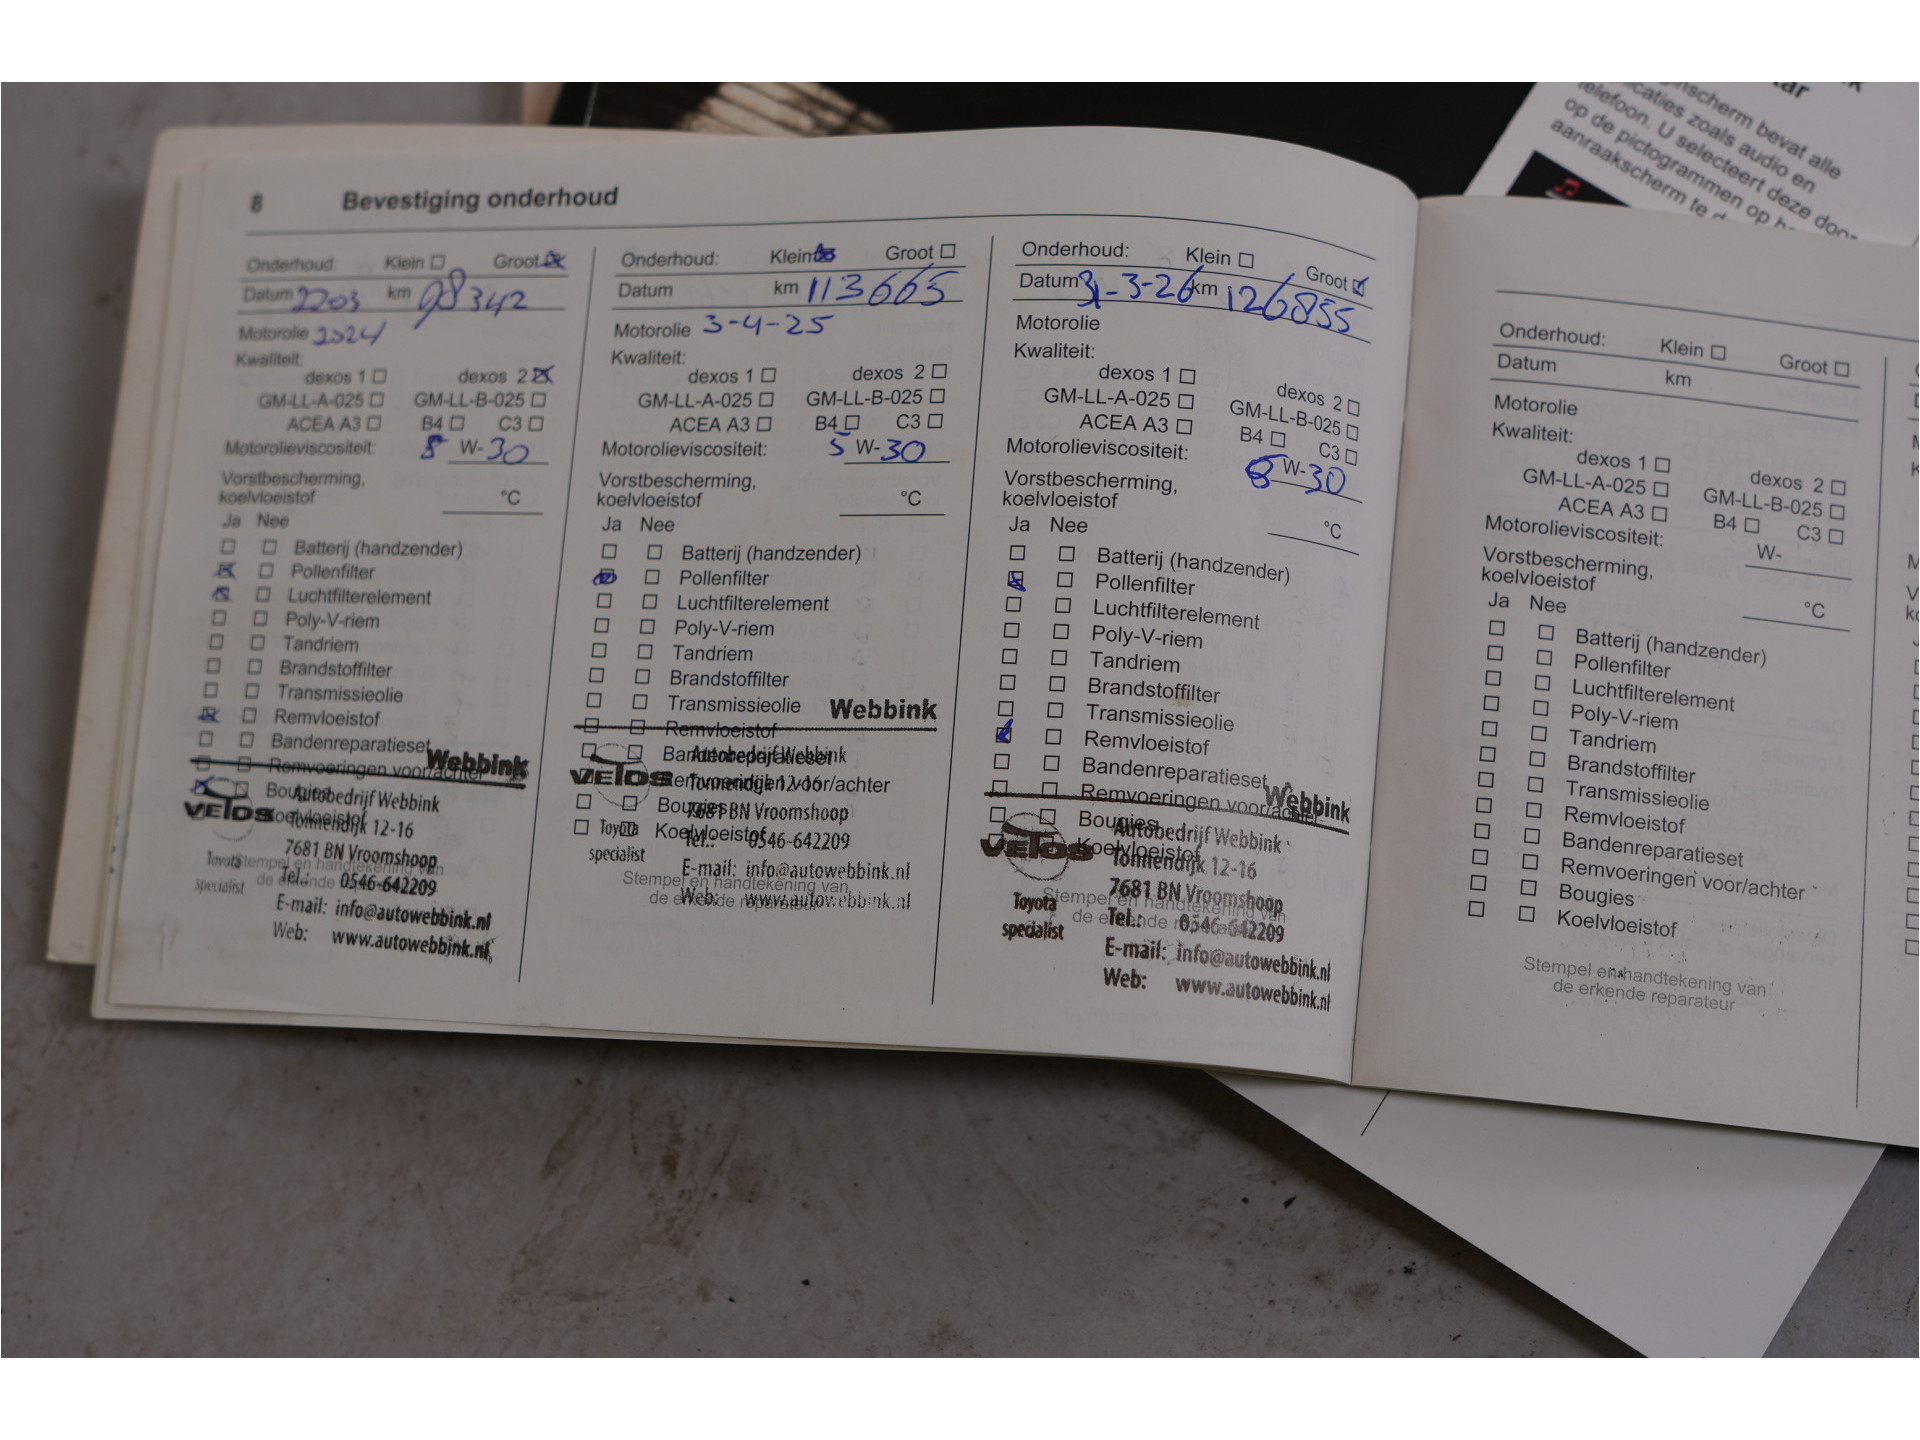 8 Bevestiging onderhoud
Onderhoud: Klein Groot
Datum 2203 km 98342
Motorolie 2024
Kwaliteit:
dexos 1 dexos 2
GM-LL-A-025 GM-LL-B-025
ACEA A3 B4 C3
Motorolieviscositeit: 5 W-30
Vorstbescherming,
koelvloeistof °C
Ja Nee
Batterij (handzender)
Pollenfilter
Luchtfilterelement
Poly-V-riem
Tandriem
Brandstoffilter
Transmissieolie
Remvloeistof
Bandenreparatieset
Remvoeringen voor/achter
Bougies
Koelvloeistof
Stempel en handtekening van
de erkende
Webbink
VETOS
Toyota
specialist
Autobedrijf Webbink
Tonnendijk 12-16
7681 BN Vroomshoop
Tel.: 0546-642209
E-mail: info@autowebbink.nl
Web: www.autowebbink.nl
Onderhoud: Klein Groot
Datum km 113665
Motorolie 3-4-25
Kwaliteit:
dexos 1 dexos 2
GM-LL-A-025 GM-LL-B-025
ACEA A3 B4 C3
Motorolieviscositeit: 5 W-30
Vorstbescherming,
koelvloeistof °C
Ja Nee
Batterij (handzender)
Pollenfilter
Luchtfilterelement
Poly-V-riem
Tandriem
Brandstoffilter
Transmissieolie
Remvloeistof
Bandenreparatieset
Remvoeringen voor/achter
Bougies
Koelvloeistof
Stempel en handtekening van
de erkende reparateur
Webbink
VETOS
Toyota
specialist
Autobedrijf Webbink
Tonnendijk 12-16
7681 BN Vroomshoop
Tel.: 0546-642209
E-mail: info@autowebbink.nl
Web: www.autowebbink.nl
Onderhoud: Klein Groot
Datum 31-3-26 km 126855
Motorolie
Kwaliteit:
dexos 1 dexos 2
GM-LL-A-025 GM-LL-B-025
ACEA A3 B4 C3
Motorolieviscositeit: 5 W-30
Vorstbescherming,
koelvloeistof °C
Ja Nee
Batterij (handzender)
Pollenfilter
Luchtfilterelement
Poly-V-riem
Tandriem
Brandstoffilter
Transmissieolie
Remvloeistof
Bandenreparatieset
Remvoeringen voor/achter
Bougies
Koelvloeistof
Stempel en handtekening van
de erkende
Webbink
VETOS
Toyota
specialist
Autobedrijf Webbink
Tonnendijk 12-16
7681 BN Vroomshoop
Tel.: 0546-642209
E-mail: info@autowebbink.nl
Web: www.autowebbink.nl
Onderhoud: Klein Groot
Datum km
Motorolie
Kwaliteit:
dexos 1 dexos 2
GM-LL-A-025 GM-LL-B-025
ACEA A3 B4 C3
Motorolieviscositeit: W-
Vorstbescherming,
koelvloeistof °C
Ja Nee
Batterij (handzender)
Pollenfilter
Luchtfilterelement
Poly-V-riem
Tandriem
Brandstoffilter
Transmissieolie
Remvloeistof
Bandenreparatieset
Remvoeringen voor/achter
Bougies
Koelvloeistof
Stempel en handtekening van
de erkende reparateur
bevat alle
zoals audio en
telefoon. U selecteert deze door
op de pictogrammen op
aanraakscherm te